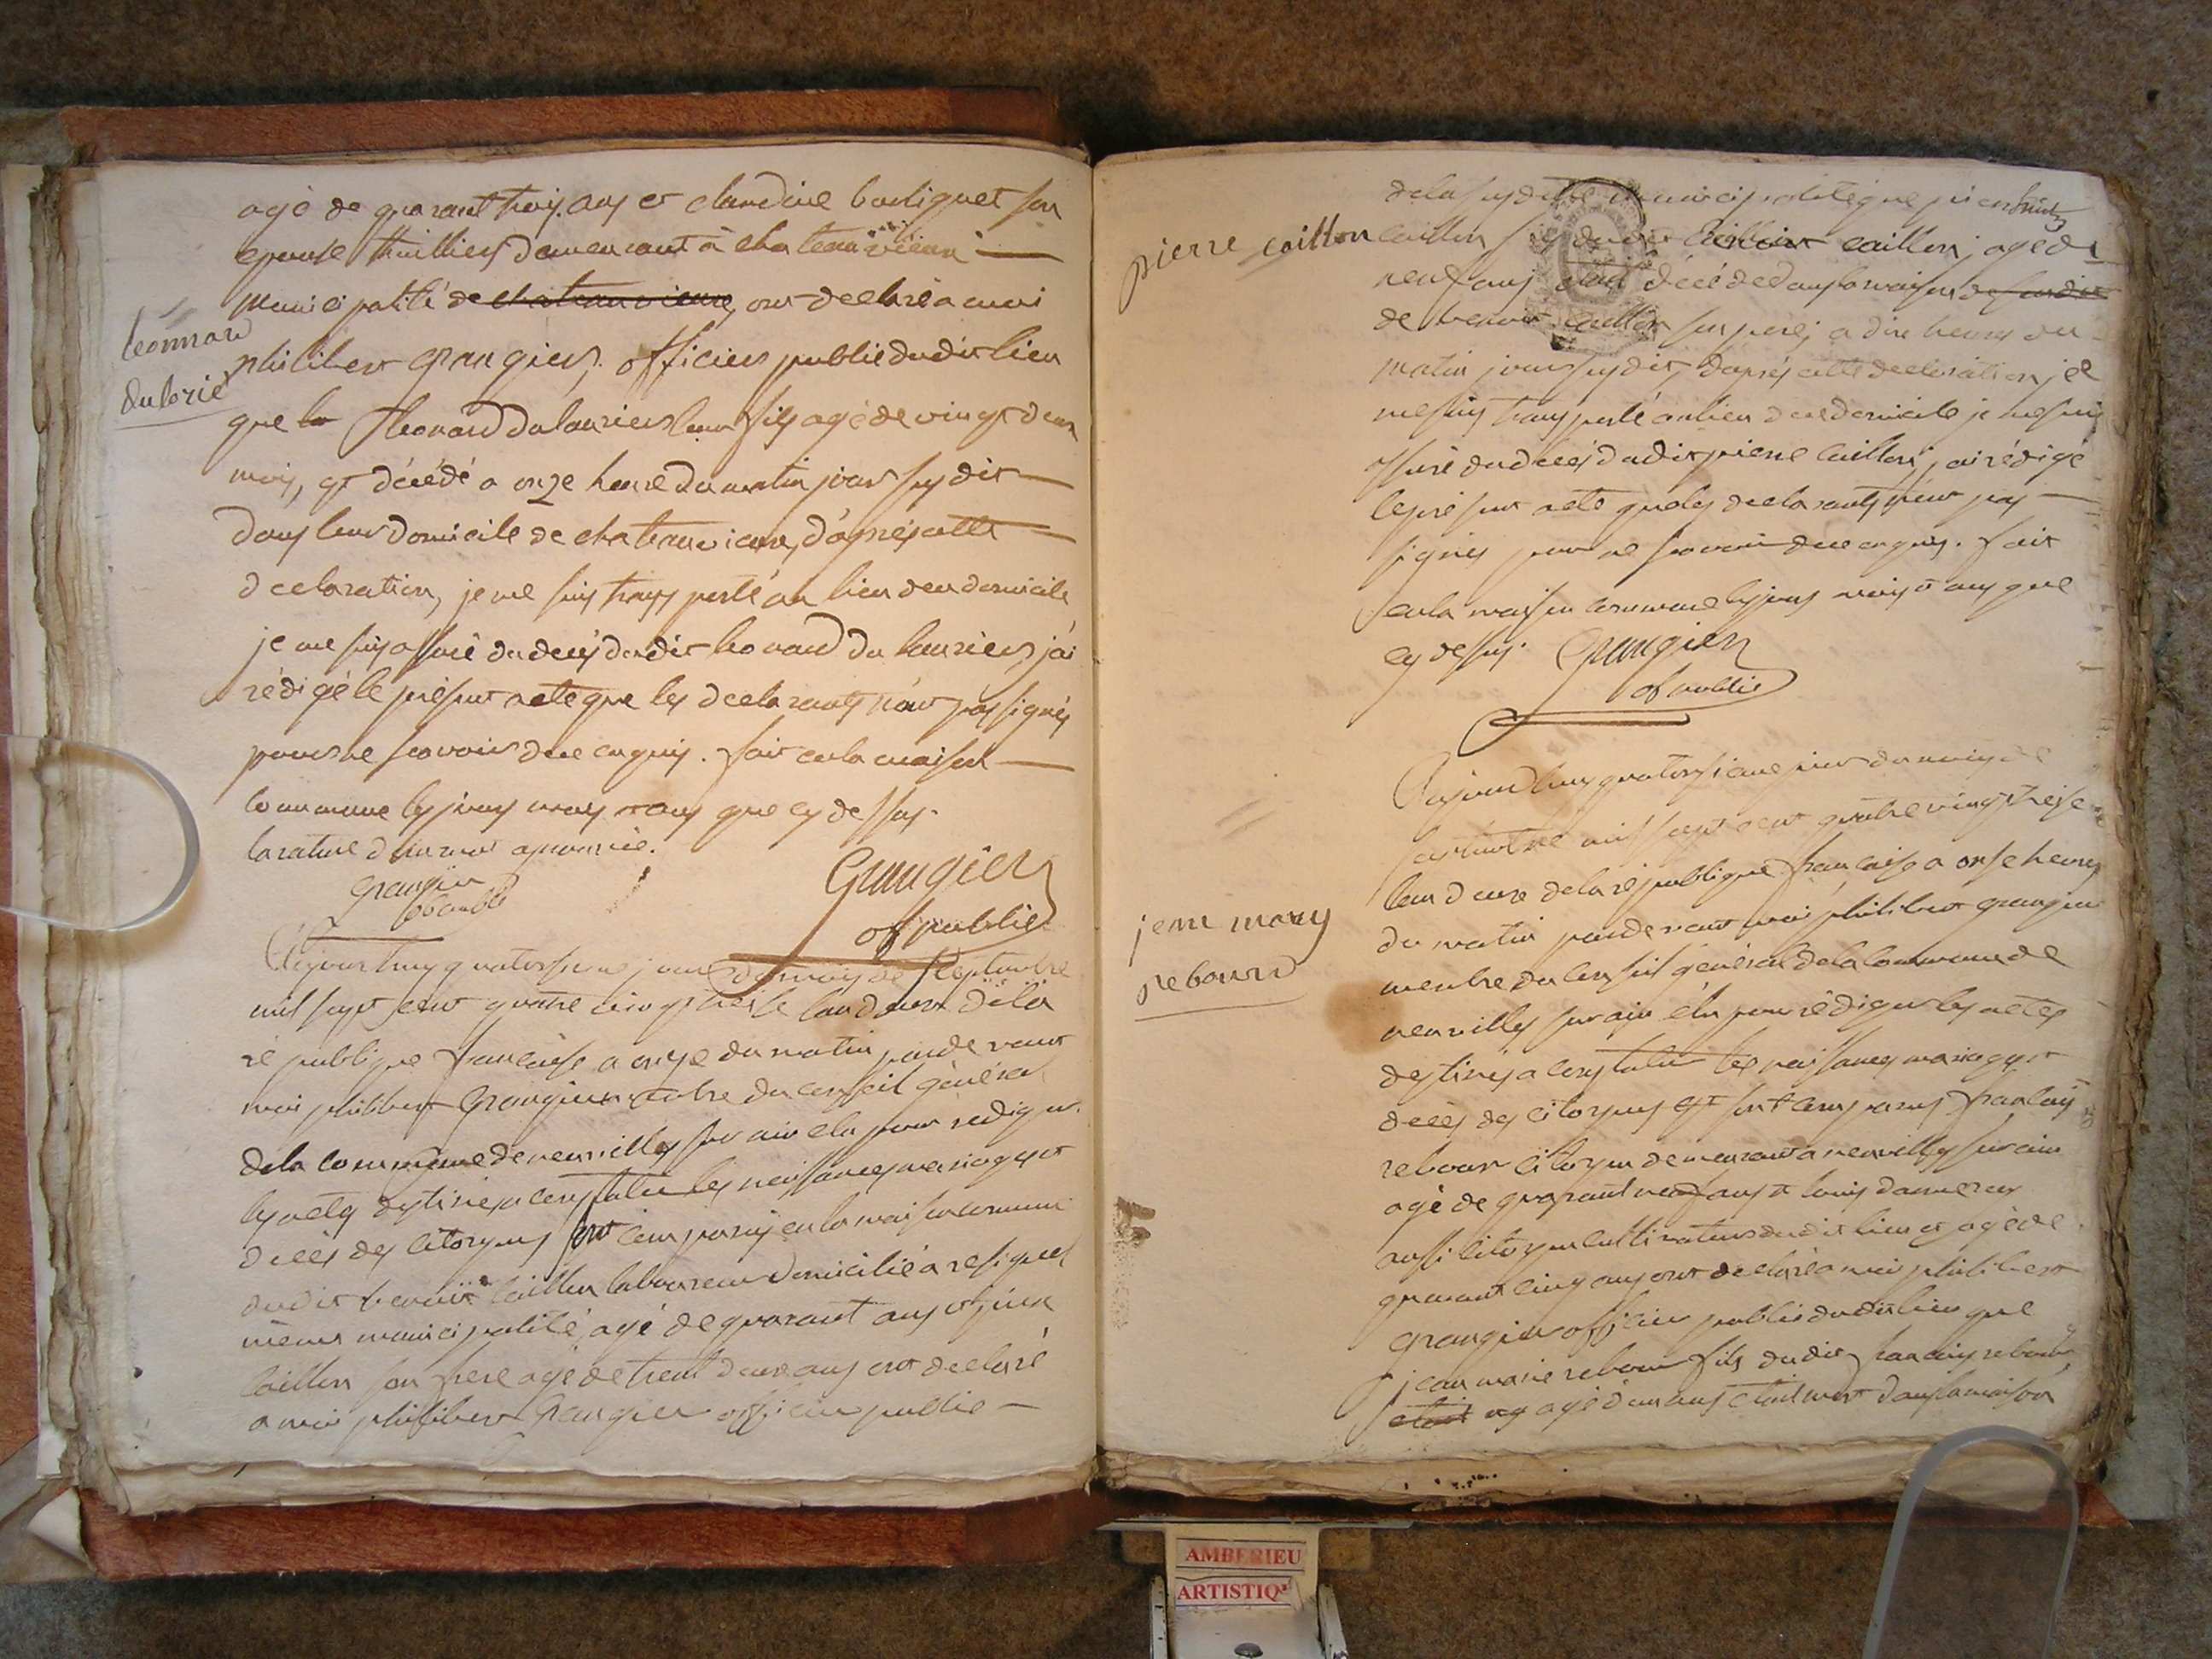 agé de quarant trois ans et claudine bouliguet son
epouse thuilliers demeurant à chateauvieux
leonnard
dulorié
municipalité de chateauvieux, ont declaré a moi
philibert grangier, officier public dudit lieu
que le leonard dulaurier leur fils agé de vingt deux
mois, est décédé a onze heure du matin jour susdit
dans leur domicile de chateauvieux, d'après cette
declaration, je me suis transporté au lieu deu domicile
je me suis assuré du deces dudit leonard du laurier, j'ai
rédigé le présent acte que les declarants n'ont pas signés
pour ne scavoir de ce enquis. fait en la maison
commune les jour mois et ans que cy dessus.
la rature d'un mot aprouvée.
grangier
Grangier
of public
Aujourd'huy quatorsieme jour du mois de septembre
mil sept cent quatre vingt treise l'an deux de la
république francaise a onse du matin par devant
moi philibert Grangier membre du conseil général
de la commune de neuville sur ain elu pour rediger
les actes destinés a constater les naissances mariages et
décès des citoyens sont comparus en la maison commune
dudit benoit caillon laboureur domicilié a resignel
même municipalité, agé de quarant ans et jean
caillon son frere agé de trent deux ans ont declaré
a moi philibert Grangier officier public
pierre caillon
de la susditte municipalité que pierre
caillon fils dudit caillon, agé de
neuf ans etoit décédé dans la maison de sondit
de benoit caillon son pere, a dix heures du
matin jour susdit, d'après cette declaration je
me suis transporté au lieu deu domicile je me suis
assuré du décés dudit pierre caillon, j'ai rédigé
le présent acte que les declarants n'ont pas
signés pour ne scavoir de ce enquis. fait
en la maison commune les jour mois et ans que
cy dessus. Grangier
of public
jene mary
rebourd
Aujourd'huy quatorsieme jour du mois de
septembre mil sept cent quatre vingt treise
l'an deuxe de la république francaise a onse heures
du matin pardevant moi philibert grangier
membre du conseil général de la commune de
neuville sur ain élu pour rédiger les actes
destinés a constater les naissances mariages et
décès des citoyens est sont comparus francois
rebour citoyen demeurant a neuville sur ain
agé de quarant neuf ans et louis
aussi citoyen cultivateur dudit lieu et agé de
quarant cinq ans ont declaré a moi philibert
grangier officier public dudit lieu que
jean marie rebour fils dudit francois rebour
etoit agé d'un ans etoit mort dans la maison
AMBERIEU
ARTISTIQ